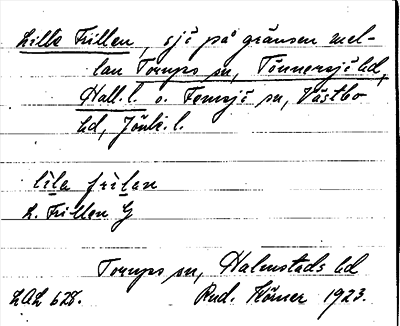 Lille Frillen, sjö på gränsen mel-
lan Torups sn, Tönnersjö hd,
Hall. l. o. Femsjö sn, Västbo
hd, Jönk. l.
lìla frìlan
L. Frillen G
Torups sn, Halmstads hd
LAL 628. Rud. Körner 1923.